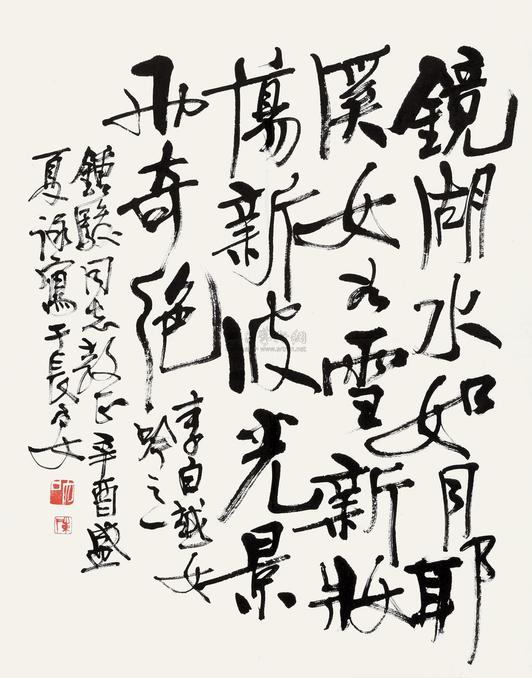 鏡湖水如月耶
溪女如雪新妝
蕩新波光景
兩奇絕
李白越女
吟之一
鐘駿同志教正辛酉盛
夏詠寫于長安